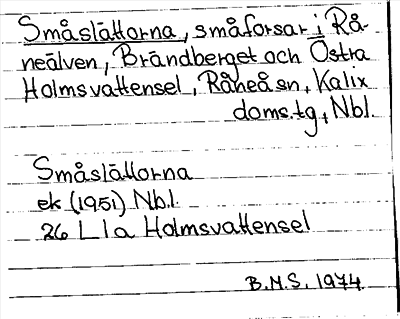 Småslåttorna, småforsar i Rå-
neälven, Brändberget och Östra
Holmsvattensel, Råneå sn, Kalix
doms.tg, Nbl.
Småslåttorna
ek (1951) Nb.l.
26 L 1a Holmsvattensel
B.M.S. 1974.